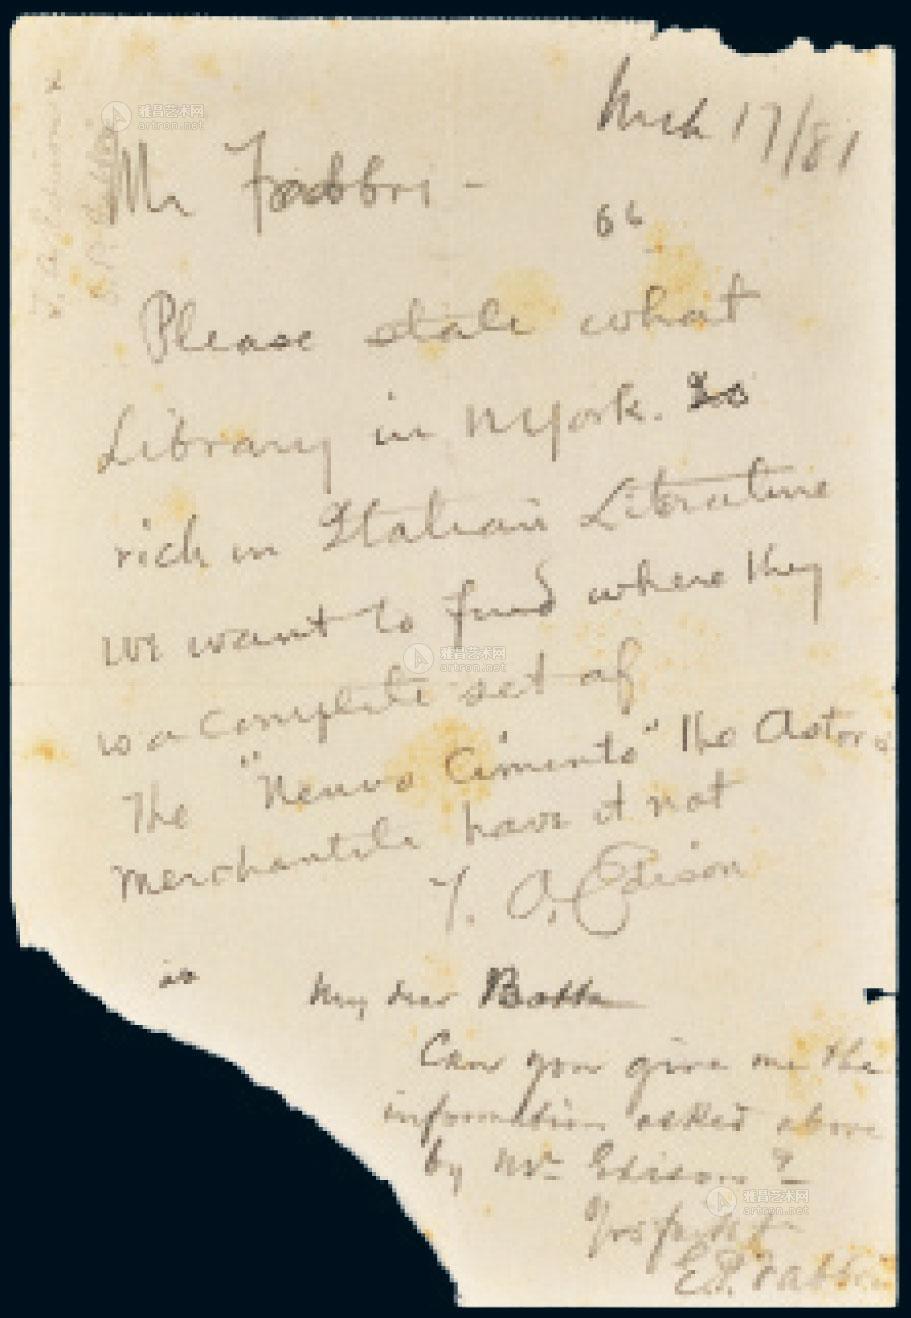 Mch 17/81
Mr Fabbri -
Please state what
Library in NYork. is
rich in Italian Literature
we want to find where they
is a complete set of
The "Neuvo Cimento" the Astor &
merchantile have it not
T. A. Edison
My dear Botta
Can you give me the
information asked above
by Mr Edison?
E.P. Fabbri
雅昌艺术网
artron.net
雅昌艺术网
artron.net
雅昌艺术网
artron.net